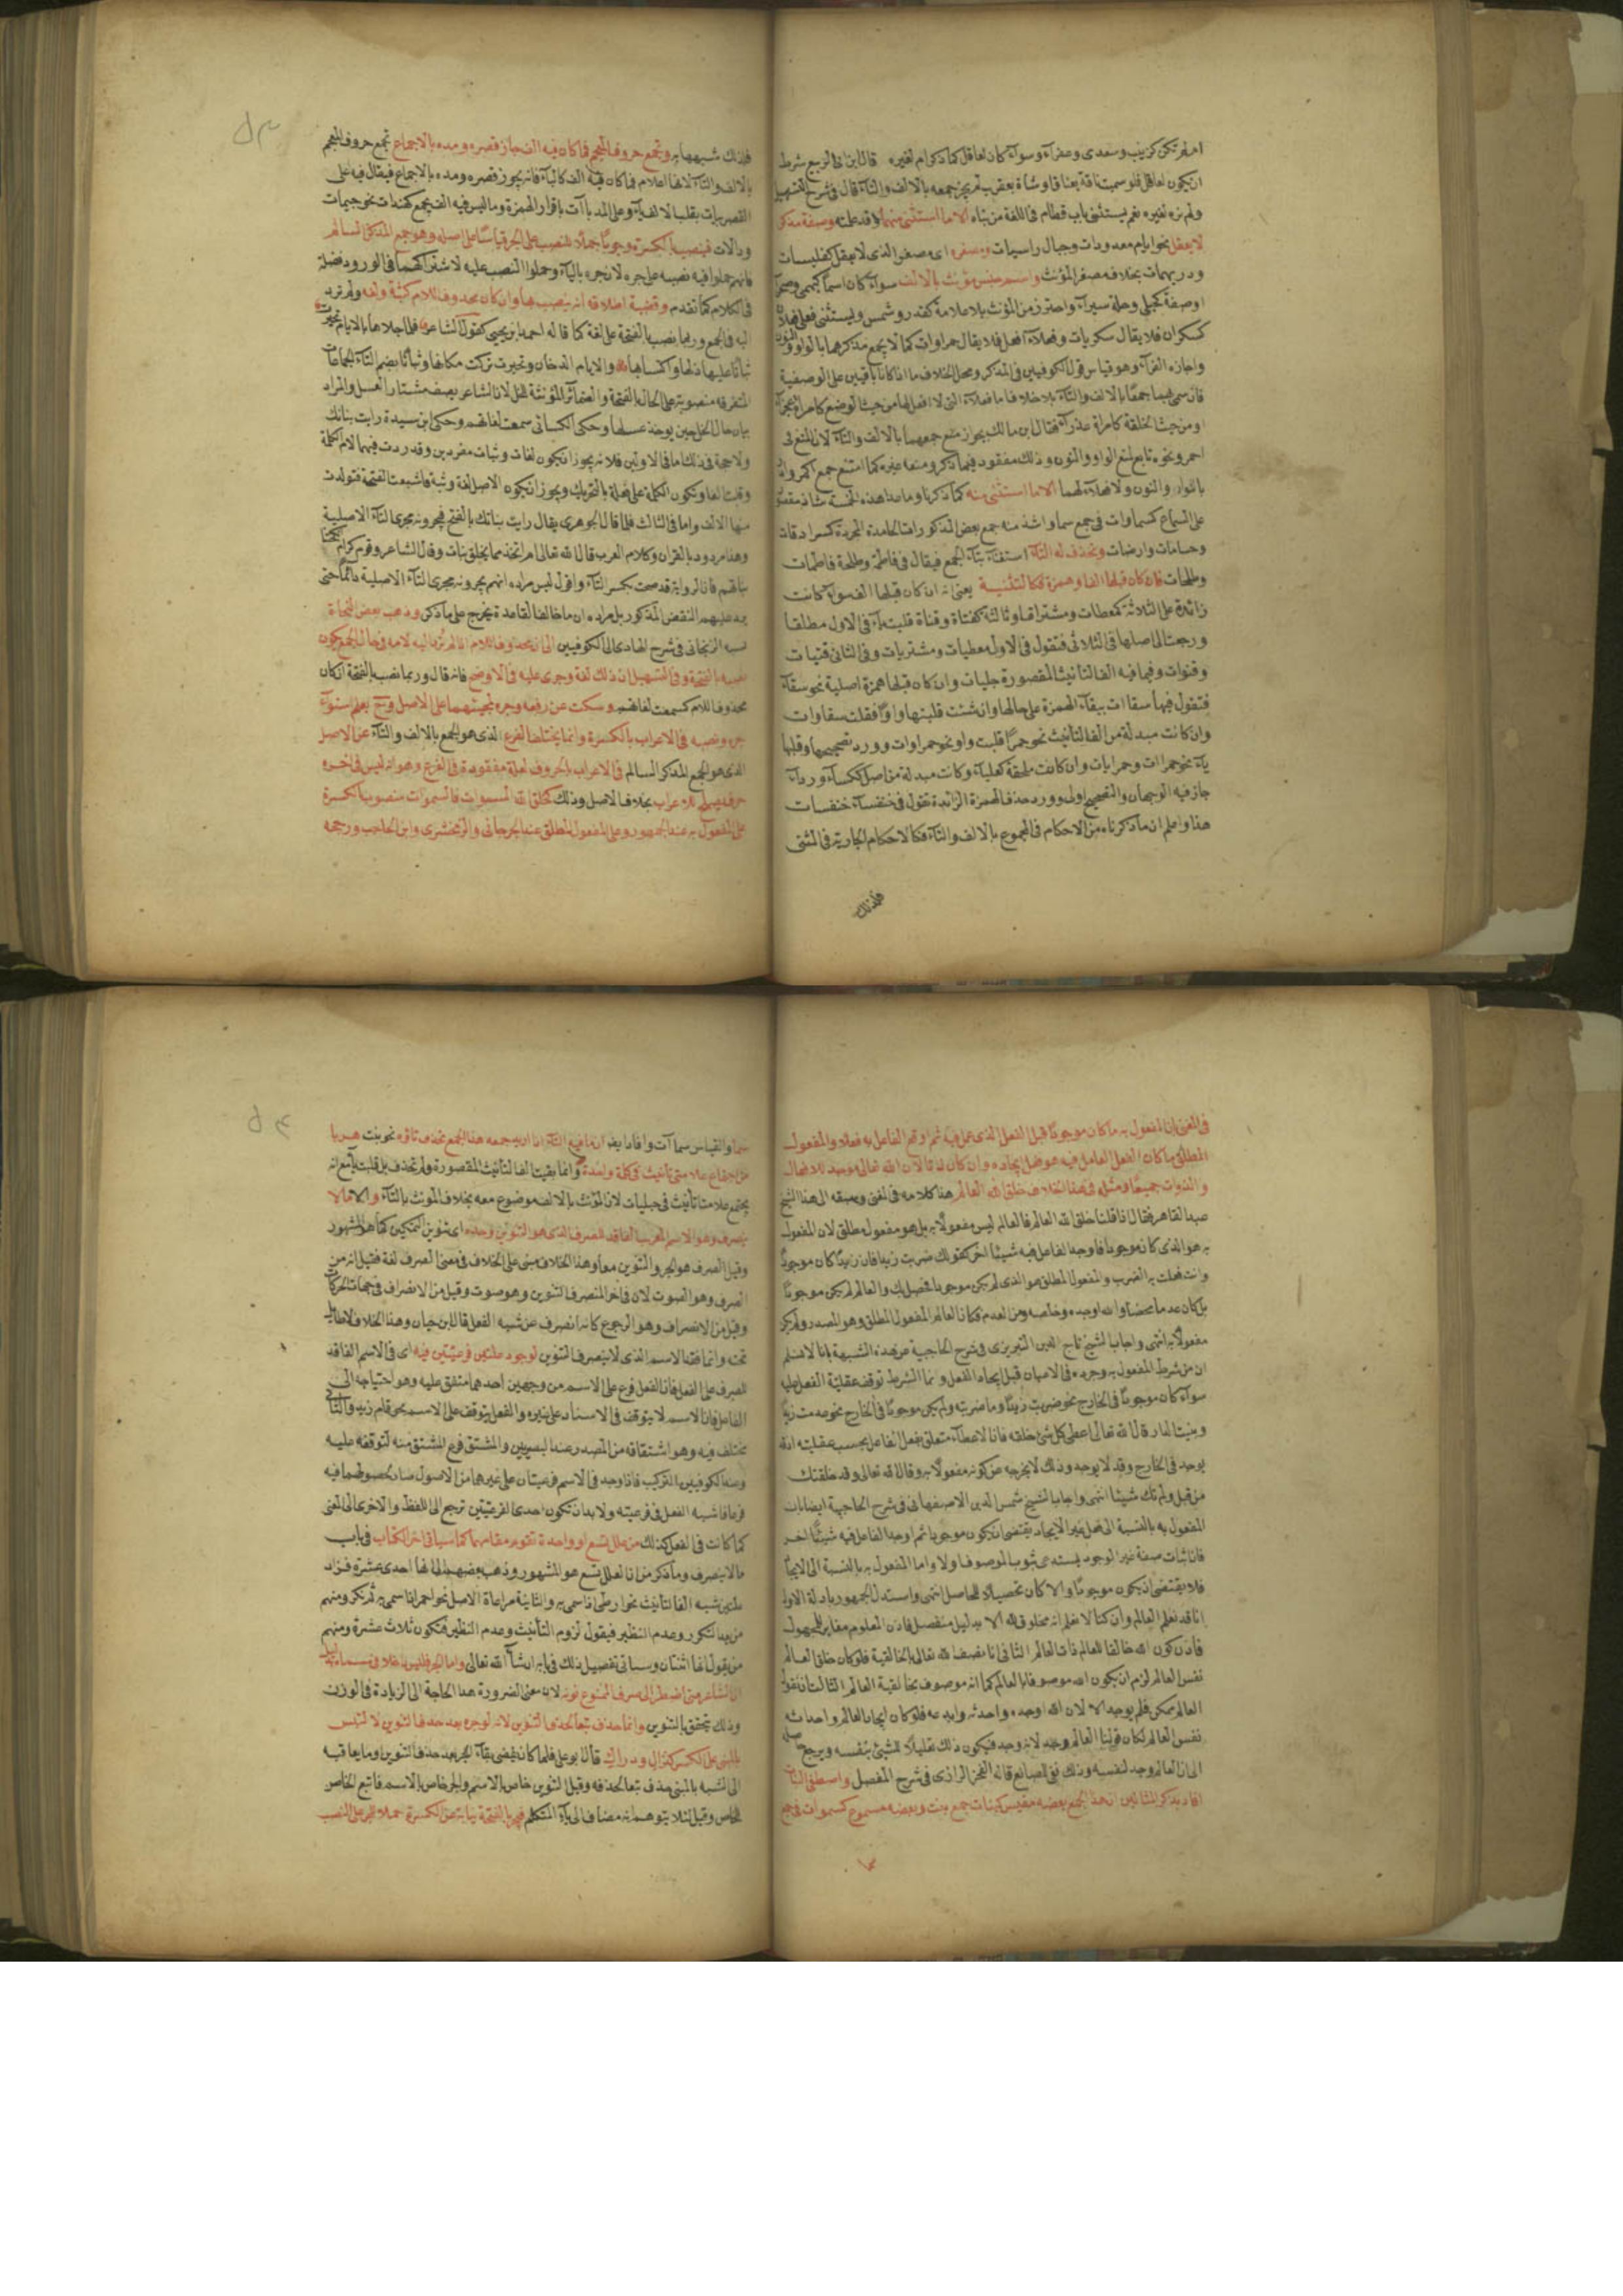 ام لم تكن كزينب وسعدى وعفرآء وسوآء كان لعاقل كما ذكر ام لغيره قال ابن ابى الربيع شرط
ان يكون لعاقل فلو سميت ناقة بعناق او شاة بعقرب لم يجز جمعه بالالف والتآء قال فى شرح التسهيل
ولم نره لغيره نعم يستثنى باب قطام فى اللغة من بناه الا ما استثنى منهما وقد علمته وصفة مذكر
لا يعقل نحو ايام معدودات وجبال راسيات ومصغره اى مصغر الذى لا يعقل كفليسات
ودريهمات بخلاف مصغر المؤنث واسم جنس مؤنث بالالف سوآء كان اسما كبهمى وصحرآ
او صفة كحبلى وحلة سيرآء واحترز من المؤنث بلا علامة كقدر وشمس ويستثنى فعلى فعلان
كسكران فلا يقال سكريات وفعلآء افعل فلا يقال حمراوات كما لا يجمع مذكرهما بالواو والنون
واجازه الفرآء وهو قياس قول الكوفيين فى المذكر ومحل الخلاف ما اذا كانا باقيين على الوصفية
فان سمى بهما جمعًا بالالف والتآء بلا خلاف اما فعلآء التى لا افعل لها من حيث الوضع كامراة عجزآء
او من حيث الخلقة كامراة عذرآء فقال ابن مالك يجوز منع جمعهما بالالف والتآء لان المنع فى
احمر ونحوه تابع لمنع الواو والنون وذلك مفقود فيما ذكر ومنعه غيره كما امتنع جمع اكمر
بالواو والنون ولا فعلآء لهما الا ما استثنى منه كما ذكرنا وما عدا هذه الخمسة شاذ مقصور
على السماع كسماوات فى جمع سما واشذ منه جمع بعض المذكورات الجامدة المجردة كسرادقات
وحمامات وارضات وتحذف له التآء استغنآء بتآء الجمع فيقال فى فاطمة وطلحة فاطمات
وطلحات فان كان قبلها الف او همزة فكالتثنية يعنى انه ان كان قبلها الف سوآء كانت
زائدة على الثلاثة كمعطات ومشتراة او ثالثة كفتاة وقناة قلبت يآء فى الاول مطلقا
ورجعت الى اصلها فى الثلاثى فتقول فى الاول معطيات ومشتريات وفى الثانى فتيات
وقنوات وفيما فيه الف التانيث المقصورة حبليات وان كان قبلها همزة اصلية نحو سقآءة
فتقول فيها سقاات ببقآء الهمزة على حالها وان شئت قلبتها واوًا فقلت سقاوات
وان كانت مبدلة من الف التأنيث نحو حمرآ قلبت واو نحو حمراوات وورد تصحيحها وقلبها
يآء نحو حمراات وحمرايات وان كانت ملحقة كعلبآء او كانت مبدلة من اصل ككسآء وردآء
جاز فيه الوجهان والتصحيح اولى وورد حذف الهمزة الزائدة تقول فى خنفسآء خنفسات
هذا واعلم ان ما ذكرناه من الاحكام فى المجموع بالالف والتآء فكالاحكام الجارية فى المثنى
فلذلك
فلذلك شبهها به وتجمع حروف المعجم فما كان فيه الف جاز قصره ومده بالاجماع تجمع حروف المعجم
بالالف والتآء لانها اعلام فما كان فيه الف كالبآء فانه يجوز قصره ومده بالاجماع فيقال فيه على
القصر بيات بقلب الالف يآء وعلى المد باآت باقرار الهمزة وما ليس فيه الف يجمع كهندات نحو جيمات
ودالات فينصب بالكسرة وجوبًا حملًا للنصب على الجر قياسًا على اصله وهو جمع المذكر السالم
فانهم حملوا فيه نصبه على جره لان جره باليآء وحملوا النصب عليه لاشتراكهما فى الورود فضلة
فى الكلام كما تقدم وقضية اطلاقه انه ينصب بها وان كان محذوف اللام كثبة ولغه ولم ترد
اليه فى الجمع وربما نصب بالفتحة على لغة كما قاله احمد بن يحيى كقول الشاعر فلما جلاها بالايام تحيزت
ثباتًا عليها ذلها واكتسابها والايام الدخان وتحيرت تركت مكانها وثباتًا بضم الثآء الجماعات
المتفرقة منصوبة على الحال بالفتحة والضمائر المؤنثة للنحل لان الشاعر يصف مشتار العسل والمراد
بيان حال النحل حين يوخذ عسلها وحكى الكسائى سمعت لغاتهم وحكى ابن سيدة رايت بناتك
ولا حجة فى ذلك اما فى الاولين فلانه يجوز ان يكون لغات وثبات مفردين وقد ردت فيهما لام الكلمة
وقلبت الفا وتكون الكلمة على فعلة بالتحريك ويجوز ان يكون الاصل لغة وثبة فاشبعت الفتحة فتولدت
منها الالف واما فى الثالث فلما قال الجوهرى يقال رايت بناتك بالفتح فيجرونه مجرى التآء الاصلية
وهذا مردود بالقران وكلام العرب قال الله تعالى ام اتخذ مما يخلق بنات وقال الشاعر وقوم كرام
بناتهم فان الرواية قد صحت بكسر التآء واقول ليس مراده انهم يجرونه مجرى التآء الاصلية دائمًا حتى
يرد عليهم النقض المذكور بل مراده ان ما خالف القاعدة يخرج على ما ذكر وذهب بعض النحاة
نسبه الزنجانى فى شرح الهادى الى الكوفيين الى ان محذوف اللام اذا لم ترد اليه لامه فى حال الجمع يكون
نصبه بالفتحة وفى التسهيل ان ذلك لغة وجرى عليه فى الاوضح فانه قال وربما نصب بالفتحة ان كان
محذوف اللام كسمعت لغاتهم وسكت عن رفعه وجره لمجيئهما على الاصل وح يعلم استوآء
جره ونصبه فى الاعراب بالكسرة وانما يختلف الفرع الذى هو الجمع بالالف والتآء عن الاصل
الذى هو الجمع المذكر السالم فى الاعراب بالحروف لعلة مفقودة فى الفرع وهو انه ليس فى اخره
حرف يصلح للاعراب بخلاف الاصل وذلك كخلق الله السموات فالسموات منصوب بالكسرة
على المفعول به عند الجمهور وعلى المفعول المطلق عند الجرجانى والزمخشرى وابن الحاجب ورجحه
فى المغنى بان المفعول به ما كان موجودًا قبل الفعل الذى عمل فيه ثم اوقع الفاعل به فعلا والمفعول
المطلق ما كان الفعل العامل فيه هو فعل ايجاده وان كان ذاتا لان الله تعالى موجد للافعال
والذوات جميعًا ومثله فى هذا الخلاف خلق الله العالم هذا كلامه فى المغنى وسبقه الى هذا الشيخ
عبد القاهر فقال اذا قلنا خلق الله العالم فالعالم ليس مفعولًا به بل هو مفعول مطلق لان المفعول
به هو الذى كان موجودا فاوجد الفاعل فيه شيئًا اخر كقولك ضربت زيدا فان زيدًا كان موجودًا
وانت فعلت به الضرب والمفعول المطلق هو الذى لم يكن موجودا فحصل بك والعالم لم يكن موجودًا
بل كان عدما محضا والله اوجده وخلصه من العدم فكان العالم المفعول المطلق وهو المصدر ولم يكن
مفعولًا به انتهى واجاب الشيخ تاج الدين التبريزى فى شرح الحاجبية عن هذه الشبهة بانا لا نسلم
ان من شرط المفعول به وجوده فى الاعيان قبل ايجاد الفعل وانما الشرط توقف عقلية الفعل عليه
سوآء كان موجودًا فى الخارج نحو ضربت زيدًا وما ضربته ولم يكن موجودًا فى الخارج نحو عدمت زيدًا
وبنيت الدار قال الله تعالى اعطى كل شئ خلقه فان الاعطآء متعلق بفعل الفاعل بحسب عقليته اذ
يوجد فى الخارج وقد لا يوجد وذلك لا يخرجه عن كونه مفعولًا به وقال الله تعالى وقد خلقتك
من قبل ولم تك شيئا انتهى واجاب الشيخ شمس الدين الاصفهانى فى شرح الحاجبية ايضا بان
المفعول به بالنسبة الى فعل غير الايجاد يقتضى ان يكون موجودا ثم اوجد الفاعل فيه شيئًا اخر
فان اثبات صفة غير الوجود يستدعى ثبوت الموصوف اولا واما المفعول به بالنسبة الى الايجاد
فلا يقتضى ان يكون موجودًا والا كان تحصيلًا للحاصل انتهى واستدل الجمهور بادلة الاول
انا قد نعلم العالم وان كنا لا نعلم انه مخلوق لله الا بدليل منفصل فاذن المعلوم مغاير للمجهول
فاذن كون الله خالقا للعالم غير ذات العالم الثانى انا نصف الله تعالى بالخالقية فلو كان خلق العالم
نفس العالم لزم ان يكون الله موصوفا بالعالم كما انه موصوف بخالقية العالم الثالث انا نقول
العالم ممكن فلم يوجد الا لان الله اوجده واحدثه وابدعه فلو كان ايجاد العالم واحداثه
نفس العالم لكان قولنا العالم وجد لانه وجد فيكون ذلك تعليلًا للشيئ بنفسه ويرجع حاصله
الى ان العالم وجد لنفسه وذلك نفى للصانع قاله الفخر الرازى فى شرح المفصل واصطفى البنات
افاد بذكر المثالين ان هذا الجمع بعضه مقيس كبنات جمع بنت وبعضه مسموع كسموات فى جمع
سما والقياس سماآت وافاد ايضا ان ما فيه التآء اذا اريد جمعه هذا الجمع تحذف تاؤه نحو بنت هربا
من اجتماع علامتى تأنيث فى كلمة واحدة وانما بقيت الف التأنيث المقصورة ولم تحذف بل قلبت يآء مع انه
يجتمع علامتا تأنيث فى حبليات لان المؤنث بالالف موضوع معه بخلاف المؤنث بالتآء والا ما لا
ينصرف وهو الاسم المعرب الفاقد للصرف الذى هو التنوين وحده اى تنوين التمكين كما هو المشهور
وقيل الصرف هو الجر والتنوين معا وهذا الخلاف مبنى على الخلاف فى معنى الصرف لغة فقيل انه من
الصرف وهو الصوت لان فى اخر المنصرف التنوين وهو صوت وقيل من الانصراف فى جهات الحركات
وقيل من الانصراف وهو الرجوع كانه انصرف عن شبه الفعل قال ابن حيان وهذا الخلاف لا طائل
تحته وانما فقد الاسم الذى لا ينصرف التنوين لوجود علتين فرعيتين فيه اى فى الاسم الفاقد
للصرف على الفعل فان الفعل فرع على الاسم من وجهين احدهما متفق عليه وهو احتياجه الى
الفاعل فان الاسم لا يتوقف فى الاسناد على غيره والفعل يتوقف على الاسم نحو قام زيد والثانى
مختلف فيه وهو اشتقاقه من المصدر عند البصريين والمشتق فرع المشتق منه لتوقفه عليه
وعند الكوفيين التركيب فاذا وجد فى الاسم فرعيتان على غيرهما من الاصول صار بحصولهما فيه
فرعا فاشبه الفعل فى فرعيته ولا بد ان تكون احدى الفرعيتين ترجع الى اللفظ والاخرى الى المعنى
كما كانت فى الفعل كذلك من علل تسع او واحدة تقوم مقامهما كما سياتى اخر الكتاب فى باب
ما لا ينصرف وما ذكر من ان العلل تسع هو المشهور وذهب بعضهم الى انها احدى عشرة فزاد
علتين شبه الف التأنيث نحو ارطى اذا سمى به والثانية مراعاة الاصل نحو احمر اذا سمى به ثم نكر ومنهم
من يعد التكرر وعدم النظير فيقول لزوم التأنيث وعدم النظير فتكون ثلاث عشرة ومنهم
من يقول انها اثنتان وسياتى تفصيل ذلك فى بابه ان شآ الله تعالى واما الجر فليس داخلا فى مسماه بدليل
ان الشاعر متى اضطر الى صرف الممنوع نونه لان معنى الضرورة هذا الحاجة الى الزيادة فى الوزن
وذلك تتحقق بالتنوين وانما حذف تبعا لحذف التنوين لانه لو جر بعد حذف التنوين لالتبس
بالمبنى على الكسر كنزال ودراك قال ابو على فلما كان يفضى بقآء الجر بعد حذف التنوين او ما يعاقبه
الى الشبه بالمبنى حذف تبعا لحذفه وقيل التنوين خاص بالاسم والجر خاص بالاسم فاتبع الخاص
الخاص وقيل لئلا يتوهم انه مضاف الى يآء المتكلم فيجر بالفتحة نيابة عن الكسرة حملا للجر على النصب